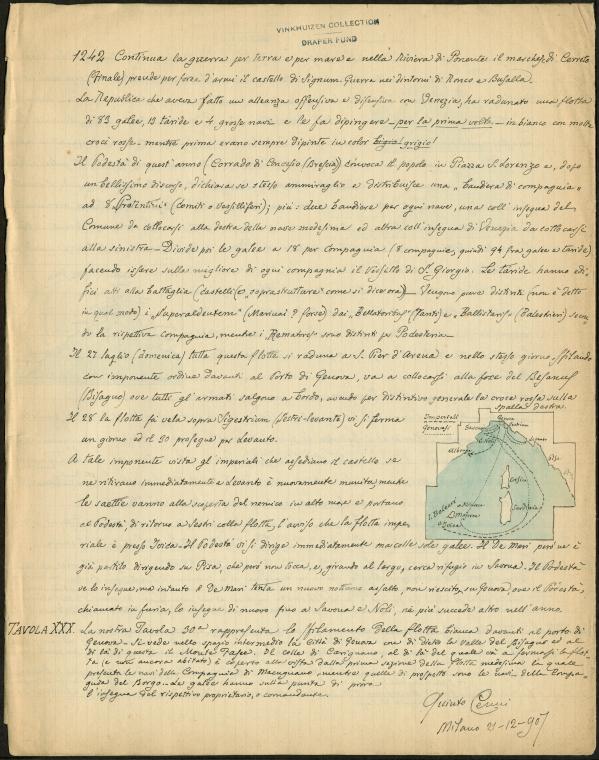 VINKHUIZEN COLLECTION
DRAPER FUND
1242 Continua la guerra per terra e per mare e nella Riviera di Ponente: il marchese di Cerreto
(Finale) prende per forza d'armi il castello di Signum. Guerra nei dintorni di Ronco e Busalla.
La Repubblica che aveva fatto un alleanza offensiva e difensiva con Venezia, ha radunato una flotta
di 83 galee, 13 taride e 4 grosse navi e le fa dipingere per la prima volta in bianco con molte
croci rosse mentre prima erano sempre dipinte in color bigio! grigio!
Il Podestà di quest'anno (Corrado di Concesio (Brescia)) convoca il popolo in Piazza S. Lorenzo e, dopo
un bellissimo discorso, dichiara se stesso ammiraglio e distribuisce una "bandiera di compagnia"
ad 8 "Protentini" (Comiti o Vessilliferi); più: due bandiere per ogni nave, una coll'insegna del
Comune da collocarsi alla destra della nave medesima ed altra coll'insegna di Venezia da collocarsi
alla sinistra - Divide poi le galee a 18 per Compagnia (8 compagnie, quindi 94 fra galee e taride)
facendo issare sulla migliore di ogni compagnia il Vessillo di S. Giorgio. Le taride hanno edi-
fici atti alla battaglia (castelli (o "soprastrutture" come si dice ora)) - Vengono pure distinti (non è detto
in qual modo) i "Superalducentes" (Marinai? forse) dai "Bellatoribus" (Fanti) e "Ballistariis" (Balestrieri) secon-
do la rispettiva compagnia, mentre i Rematori sono distinti per Podesteria.
Il 27 luglio (domenica) tutta questa flotta si raduna a S. Pier d'Arena e nello stesso giorno sfilando
con imponente ordine davanti al Porto di Genova, va a collocarsi alla foce del Besaneus
(Bisagno) ove tutti gli armati salgono a bordo, avendo per distintivo generale la croce rossa sulla
spalla destra.
Il 28 la flotta fa vela sopra Sigestrium (Sestri-levante) vi si ferma
un giorno ed il 30 prosegue per Levanto.
A tale imponente vista gl'imperiali che assediano il castello se
ne ritirano immediatamente e Levanto è nuovamente munita, mentre
le saettie vanno alla scoperta del nemico in alto mare e portano
al Podestà, di ritorno a Sestri colla flotta, l'avviso che la flotta impe-
riale è presso Ivica. Il Podestà vi si dirige immediatamente ma colle sole galee. Il De Mari però ne è
già partito dirigendo su Pisa, che però non tocca, e, girando al largo, cerca rifugio in Savona. Il Podestà
ve lo insegue, ma intanto il De Mari tenta un nuovo notturno assalto, non riescito, su Genova, ove il Podestà,
chiamato in furia, lo insegue di nuovo fino a Savona e Noli, nè più succede altro nell'anno.
Imperiali
Genovesi
Genova
Savona
Noli
Albenga
Pisa
Corsica
Sardegna
I. Baleari
Minorca
Ivica
TAVOLA XXX.
La nostra Tavola 30a rappresenta lo sfilamento della flotta bianca davanti al porto di
Genova. Si vede nello spazio intermedio la città di Genova con di dietro la valle del Bisagno ed al
di là di questa il Monte Fasce. Il colle di Carignano, al di là del quale va a fermarsi la flot-
ta (e non ancora abitato) è coperto alla vista dalla prima sezione della flotta medesima la quale
presenta le navi della Compagnia di Macagnana, mentre quelle di prospetto sono le navi della Compa-
gnia del Borgo - Le galee hanno sulla punta di prora
l'insegna del rispettivo proprietario, o comandante.
Quinto Cenni
Milano 21-12-907